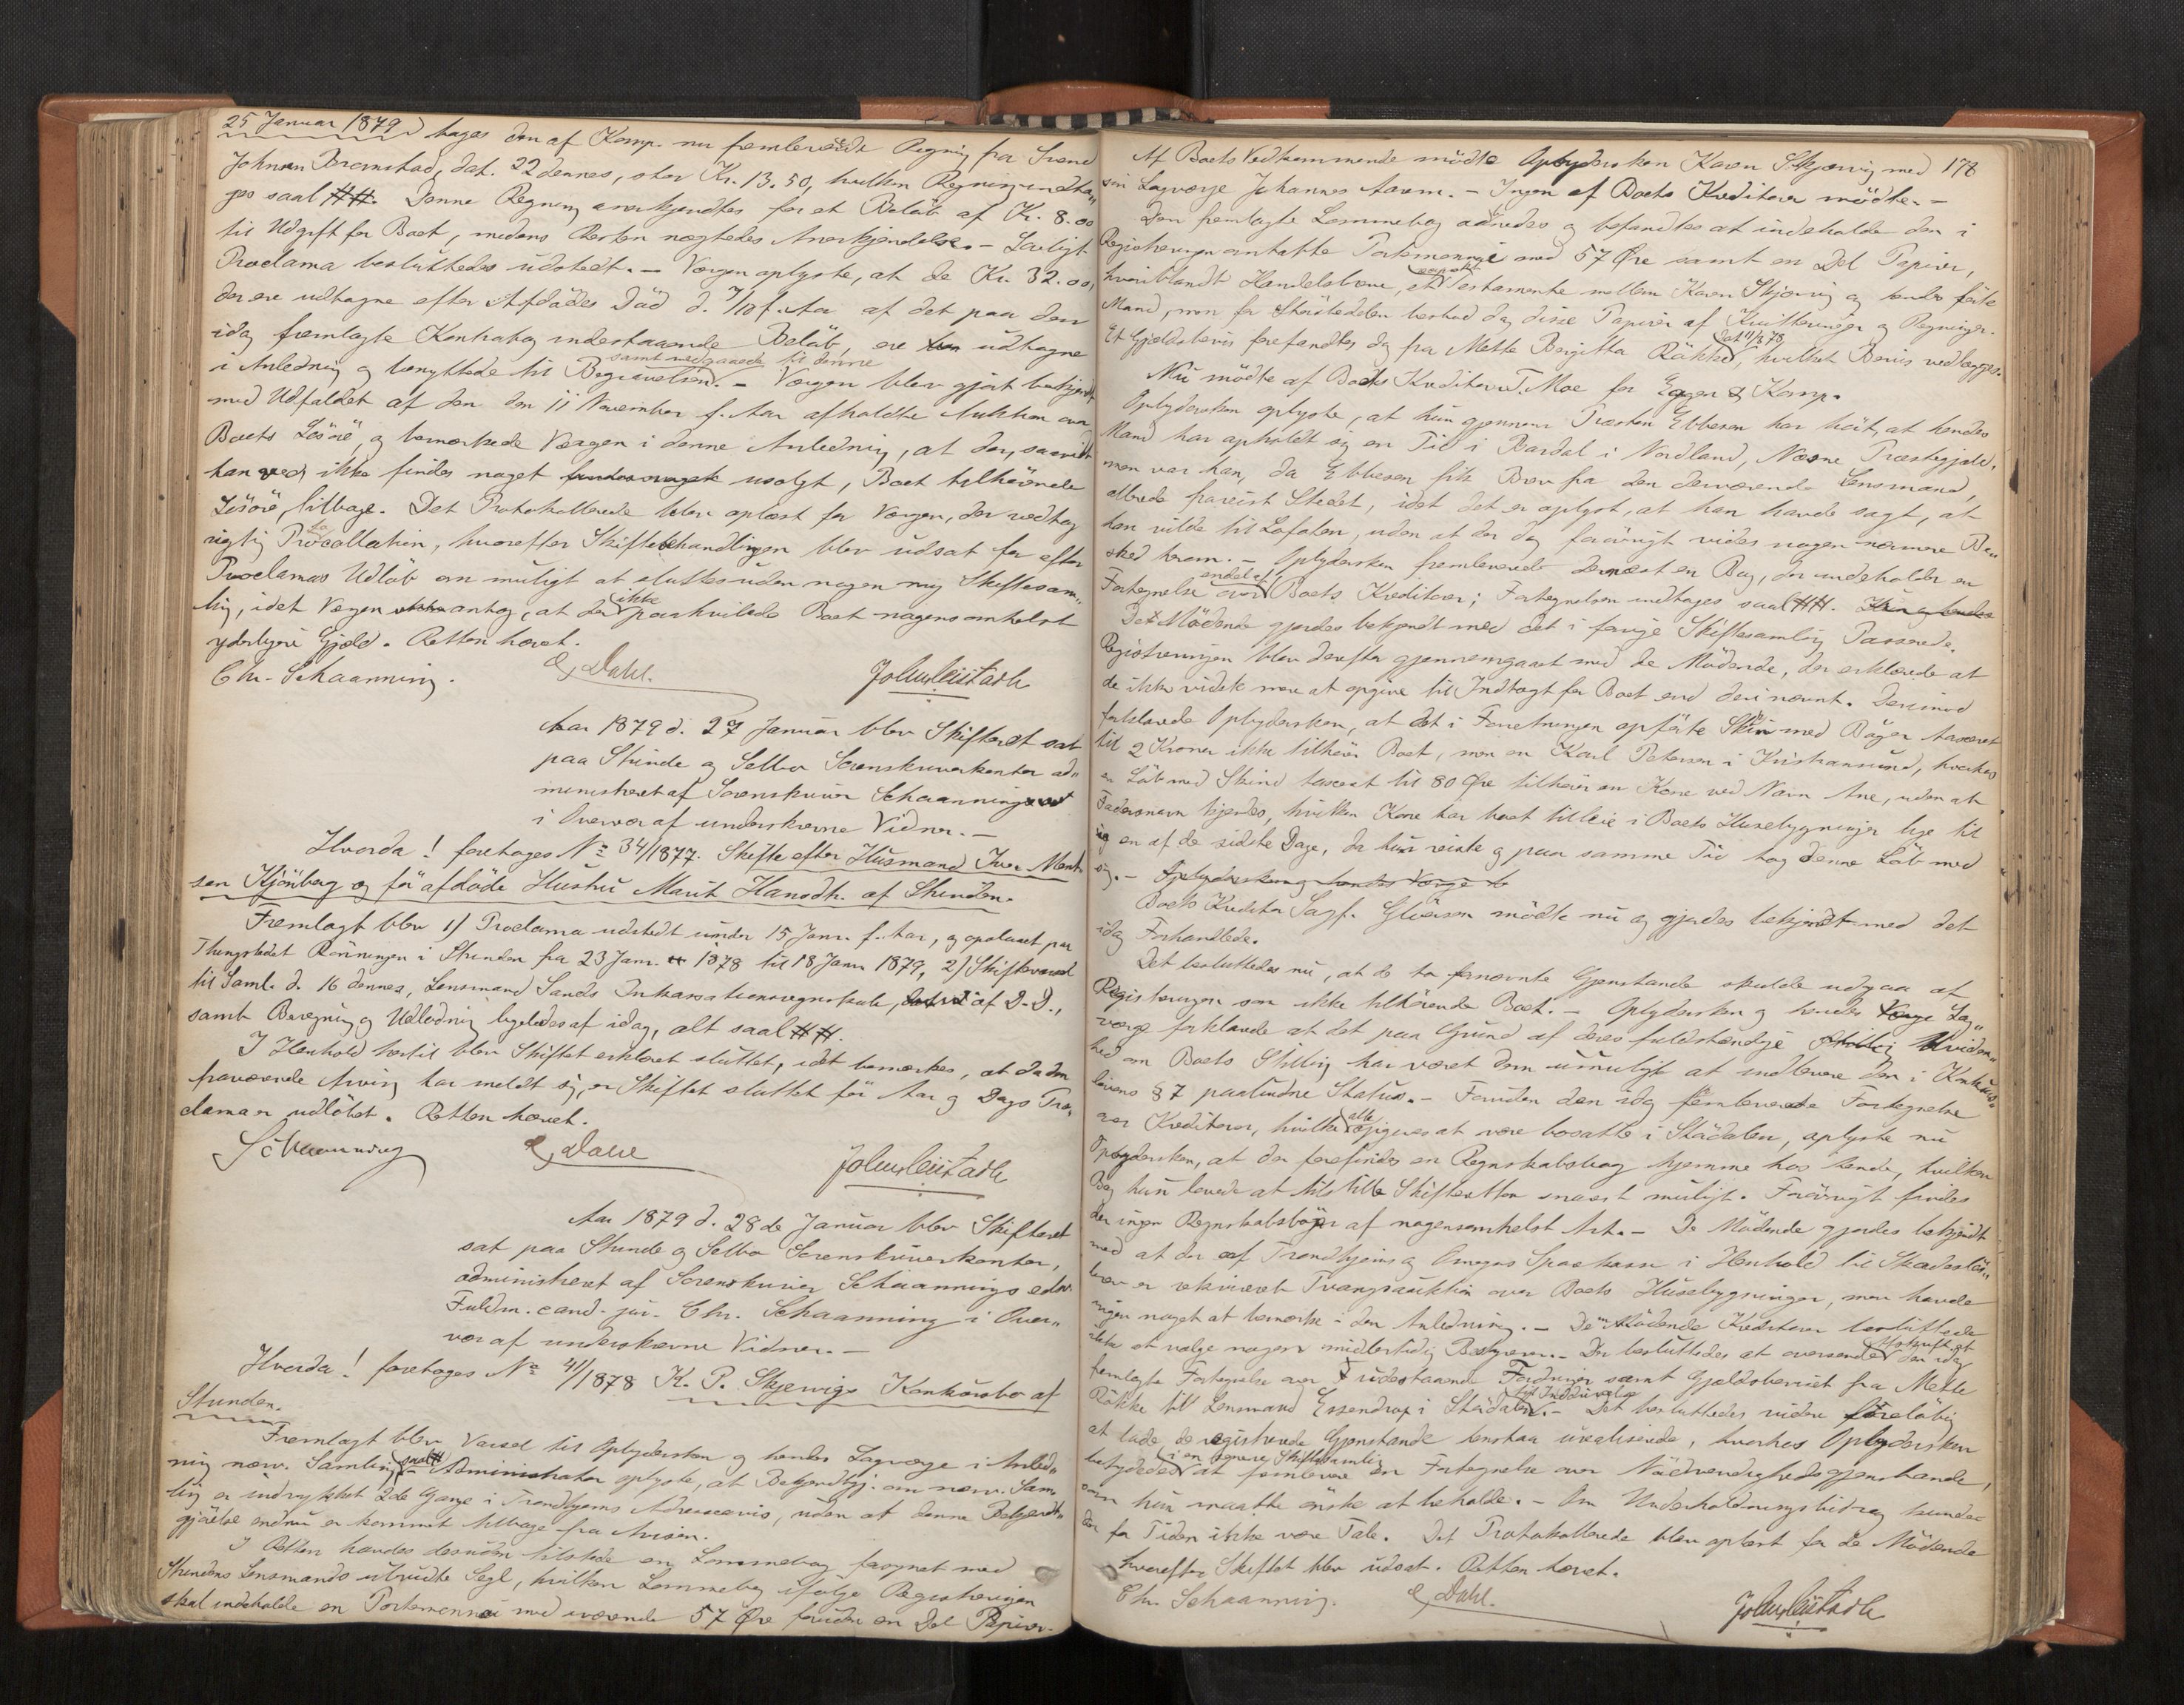 25 Januar 1879
toges den af Komp. nu fremleverede Regning fra Svend
Johnsen Bromstad, dat. 22 dennes, stor Kr. 13.50, hvilken Regning indta„
ges saal ##. Denne Regning anerkjendtes for et Beløb af Kr. 8.00
til Udgift for Boet, medens Resten nægtedes Anerkjendelse. - Lovligt
Proclama besluttedes udstedt. - Værgen oplyste, at de Kr. 32.00,
der ere udtagne efter Afdødes Død d. 7/10 f. Aar af det paa den
idag fremlagte Kontrabog indestaaende Beløb, ere udtagne
samt medgaaede til denne
i Anledning og benyttede til Begravelsen. - Værgen blev gjort bekjendt
med Udfaldet af den den 11 November f. Aar afholdte Auktion over
Boets Løsøre, og bemærkede Værgen i denne Anledning, at der, saavidt
han ved ikke findes noget usolgt, Boet tilhørende
Løsøre, tilbage. Det Protokollerede blev oplæst for Værgen, der vedtog
rigtig Protocollation, hvorefter Skiftebehandlingen blev udsat for efter
Proclamas Udløb om muligt at sluttes uden nogen ny Skiftesam„
ling, idet Værgen antog, at der ikke paahvilede Boet nogensomhelst
yderligere Gjæld. Retten hævet.
Chr. Schaanning. E Dahl. John Leistadh
Aar 1879 d. 27 Januar blev Skifteret sat
paa Strinde og Selbo Sorenskriverkontor ad„
ministreret af Sorenskriver Schaanning
i Overvær af underskrevne Vidner. -
Hvorda! foretoges No 34/1877. Skifte efter Husmand Iver Mort„
sen Kjönberg og før afdøde Hustru Marit Hansdtr. af Strinden.
Fremlagt blev 1) Proclama udstedt under 15 Janr. f. Aar, og opslaaet paa
Thingstedet Rønningen i Strinden fra 23 Janr. 1878 til 18 Janr 1879, 2) Skiftevarsel
til Saml. d. 16 dennes, Lensmand Sands Inkassationsregnskab, af D.D.,
samt Beregning og Udlodning ligeledes af idag, alt saal ##.
I Henhold hertil blev Skiftet erklæret sluttet, idet bemærkes, at da den
fraværende Arving har meldt sig, er Skiftet sluttet før Aar og Dags Pro„
clama er udløbet. Retten hævet.
Schaanning E Dahl John Leistadh
Aar 1879 d. 28de Januar blev Skifteret
sat paa Strinde og Selbo Sorenskriverkontor,
administreret af Sorenskriver Schaannings edsv.
Fuldm. cand. jur. Chr. Schaanning i Over„
vær af underskrevne Vidner. -
Hvorda! foretoges No 41/1878 K. P. Skjervigs Konkursbo af
Strinden.
Fremlagt blev Varsel til Opbydersken og hendes Lagværge i Anled„
ning nærv. Samling saal # - Administrator oplyste, at Bekjendtgj. om nærv. Sam„
ling er indrykket 2de Gange i Trondhjems Adresseavis, uden at denne Bekjendt„
gjørelse endnu er kommet tilbage fra Avisen.
I Retten havdes desuden tilstede en Lommebog forsynet med
Strindens Lensmands ubrudte Segl, hvilken Lommebog ifølge Registreringen
skal indeholde en Portemonnai med iværende 57 Øre foruden en Del Papirer.
178
Af Boets Vedkommende mødte Opbydersken Karen Skjervig med
sin Lagværge Johannes Aarem. - Ingen af Boets Kreditorer mødte. -
Den fremlagte Lommebog aabnedes og befandtes at indeholde den i
Registreringen omtalte Portemonnai med 57 Øre samt en Del Papirer,
hvoriblandt Handelsbrev, et Testamente mellem Karen Skjervig og hendes første
Mand, men for Størstedelen bestod dog disse Papirer af Kvitteringer og Regninger.
dat 11/3 78
Et Gjældsbevis forefandtes dog fra Mette Bergitta Røkke, hvilket Bevis vedlægges.
Nu mødte af Boets Kreditorer T. Moe for Egger & Komp.
Opbydersken oplyste, at hun gjennem Præsten Ebbesen har hørt, at hendes
Mand har opholdt sig en Tid i Bardal i Nordland, Næsne Præstegjeld,
men var han, da Ebbesen fik Brev fra den derværende Lensmand,
allerede frareist Stedet, idet det er oplyst, at han havde sagt, at
han vilde til Lofoten, uden at der dog forøvrigt vides nogen nærmere Be„
sked herom. - Opbydersken fremleverede dernæst en Bog, der indeholder en
Fortegnelse over endel af Boets Kreditorer; Fortegnelsen indtages saal ##.
Det Mødende gjordes bekjendt med det i forrige Skiftesamling Passerede.
Registreringen blev derefter gjennemgaaet med de Mødende, der erklærede at
de ikke vidste mere at opgive til Indtægt for Boet end deri nævnt. Derimod
forklarede Opbydersken, at det i Forretningen opførte Skrin med Bøger taxeret
til 2 Kroner ikke tilhører Boet, men en Karl Petersen i Kristiansund, hvorhos
en Løb med Skind taxeret til 80 Øre tilhører en Kone ved Navn Ane, uden at
Fadersnavn kjendes, hvilken Kone har boet tilleie i Boets Husebygninger lige til
en af de sidste Dage, da hun reiste og paa samme Tid tog denne Løb med
sig. -
Boets Kreditor Sagf. Gløersen mødte nu og gjordes bekjendt med det
idag Forhandlede.
Det besluttedes nu, at de to fornævnte Gjenstande skulde udgaa af
Registreringen som ikke tilhørende Boet. - Opbydersken og hendes Lag„
værge forklarede at det paa Grund af deres fuldstændige Uviden„
hed om Boets Stilling har været dem umuligt at indlevere den i Konkurs„
lovens § 7 paabudne Status. - Foruden den idag fremleverede Fortegnelse
over Kreditorer, hvilke alle opgives at være bosatte i Stördalen, oplyste nu
Opbydersken, at der forefindes en Regnskabsbog hjemme hos hende, hvilken
Bog hun lovede at tilstille Skifteretten snarest muligt. Forøvrigt findes
der ingen Regnskabsbøger af nogensomhelst Art. - De Mødende gjordes bekjendt
med at der af Trondhjems og Omegns Sparekasse i Henhold til Skadesløs„
brev er rekvireret Tvangsauktion over Boets Husebygninger, men havde
ingen noget at bemærke i den Anledning. - De Mødende Kreditorer besluttede
ikke at vælge nogen midlertidig Bestyrer. - Det besluttedes at oversende Udskrift af den idag
fremlagte Fortegnelse over udestaaende Fordringer samt Gjældsbeviset fra Mette
Røkke til Lensmand Essendrop i Stördalen til Inddrivelse. - Det besluttedes videre foreløbig
at lade de registrerede Gjenstande henstaa urealiserede, hvorhos Opbydersken
i en senere Skiftesamling
betydedes at fremlevere en Fortegnelse over Nødvendighedsgjenstande,
som hun maatte ønske at beholde. - Om Underholdningsbidrag kunde
der for Tiden ikke være Tale. Det Protokollerede blev oplæst for de Mødende
hvorefter Skiftet blev udsat. Retten hævet.
Chr. Schaanning. E Dahl. John Leistadh